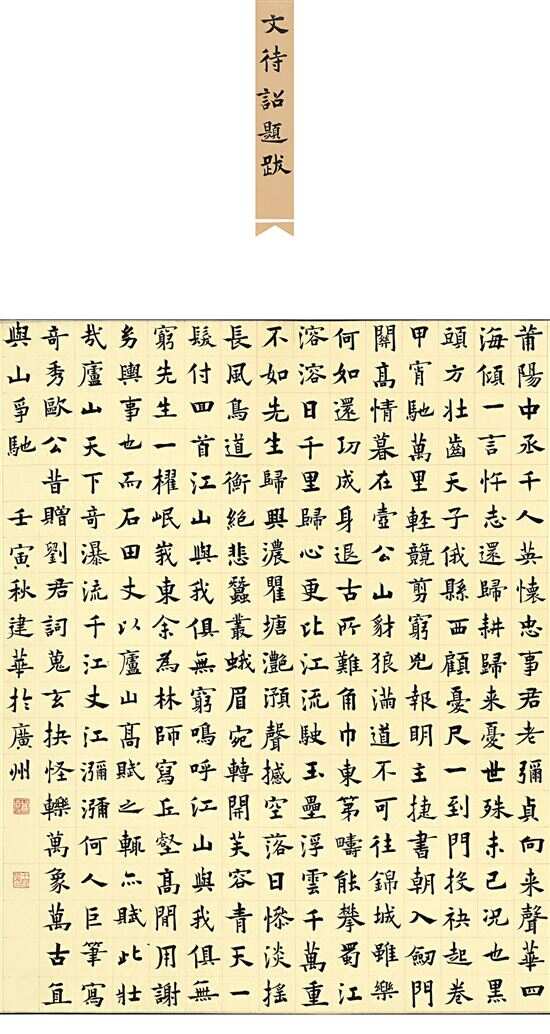 文待詔題跋
莆陽中丞千人英懷忠事君老彌貞向來聲華四
海傾一言忤志還歸耕歸來憂世殊未已況也黑
頭方壯齒天子俄縣西顧憂尺一到門投袂起卷
甲宵馳萬里輕競剪窮兇報明主捷書朝入劒門
關高情暮在壺公山豺狼滿道不可往錦城雖樂
何如還功成身退古所難角巾東第疇能攀蜀江
溶溶日千里歸心更比江流駛玉壘浮雲千萬重
不如先生歸興濃瞿塘灔澦聲撼空落日慘淡搖
長風鳥道衡絕悲蠶叢蛾眉宛轉開芙容青天一
髮付四首江山與我俱無窮鳴呼江山與我俱無
窮先生一櫂岷峩東余為林師寫丘壑高閒用謝
多輿事也而石田丈以廬山高賦之輒亦賦此壯
哉廬山天下奇瀑流千江丈江瀰瀰何人巨筆寫
奇秀歐公昔贈劉君詞蒐玄抉怪轢萬象萬古直
與山爭馳 壬寅秋建華於廣州